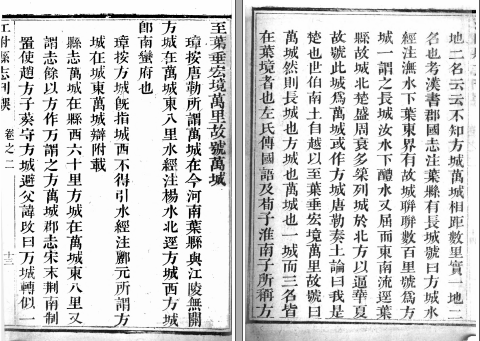 至葉垂宏境萬里故號萬城
璋按唐勒所謂萬城在今河南葉縣與江陵無關
方城在萬城東八里水經注楊水北逕方城西方城
卽南蠻府也
璋按方城旣指城西不得引水經注酈元所謂方
城在城東萬城辯附載
縣志萬城在縣西六十里方城在萬城東八里又
謂志餘以方作万謂之方萬城郡志宋末荆南制
置使趙方子葵守方城避父諱改曰万城轉似一
江陵縣志刊誤 卷之二 十三
地二名云云不知方城萬城相距數里實一地二
名也考漢書郡國志注葉縣有長城號曰方城水
經注潕水下葉東界有故城聯聯數百里號爲方
城一謂之長城汝水下醴水又屈而東南流逕葉
縣故城北楚盛周衰多築列城於北方以逼華夏
故號此城爲萬城或作方城唐勒奏土論曰我是
楚也世伯南土自越以至葉垂宏境萬里故號曰
萬城然則長城也方城也萬城也一城而三名皆
在葉境者也左氏傳國語及荀子淮南子所稱方